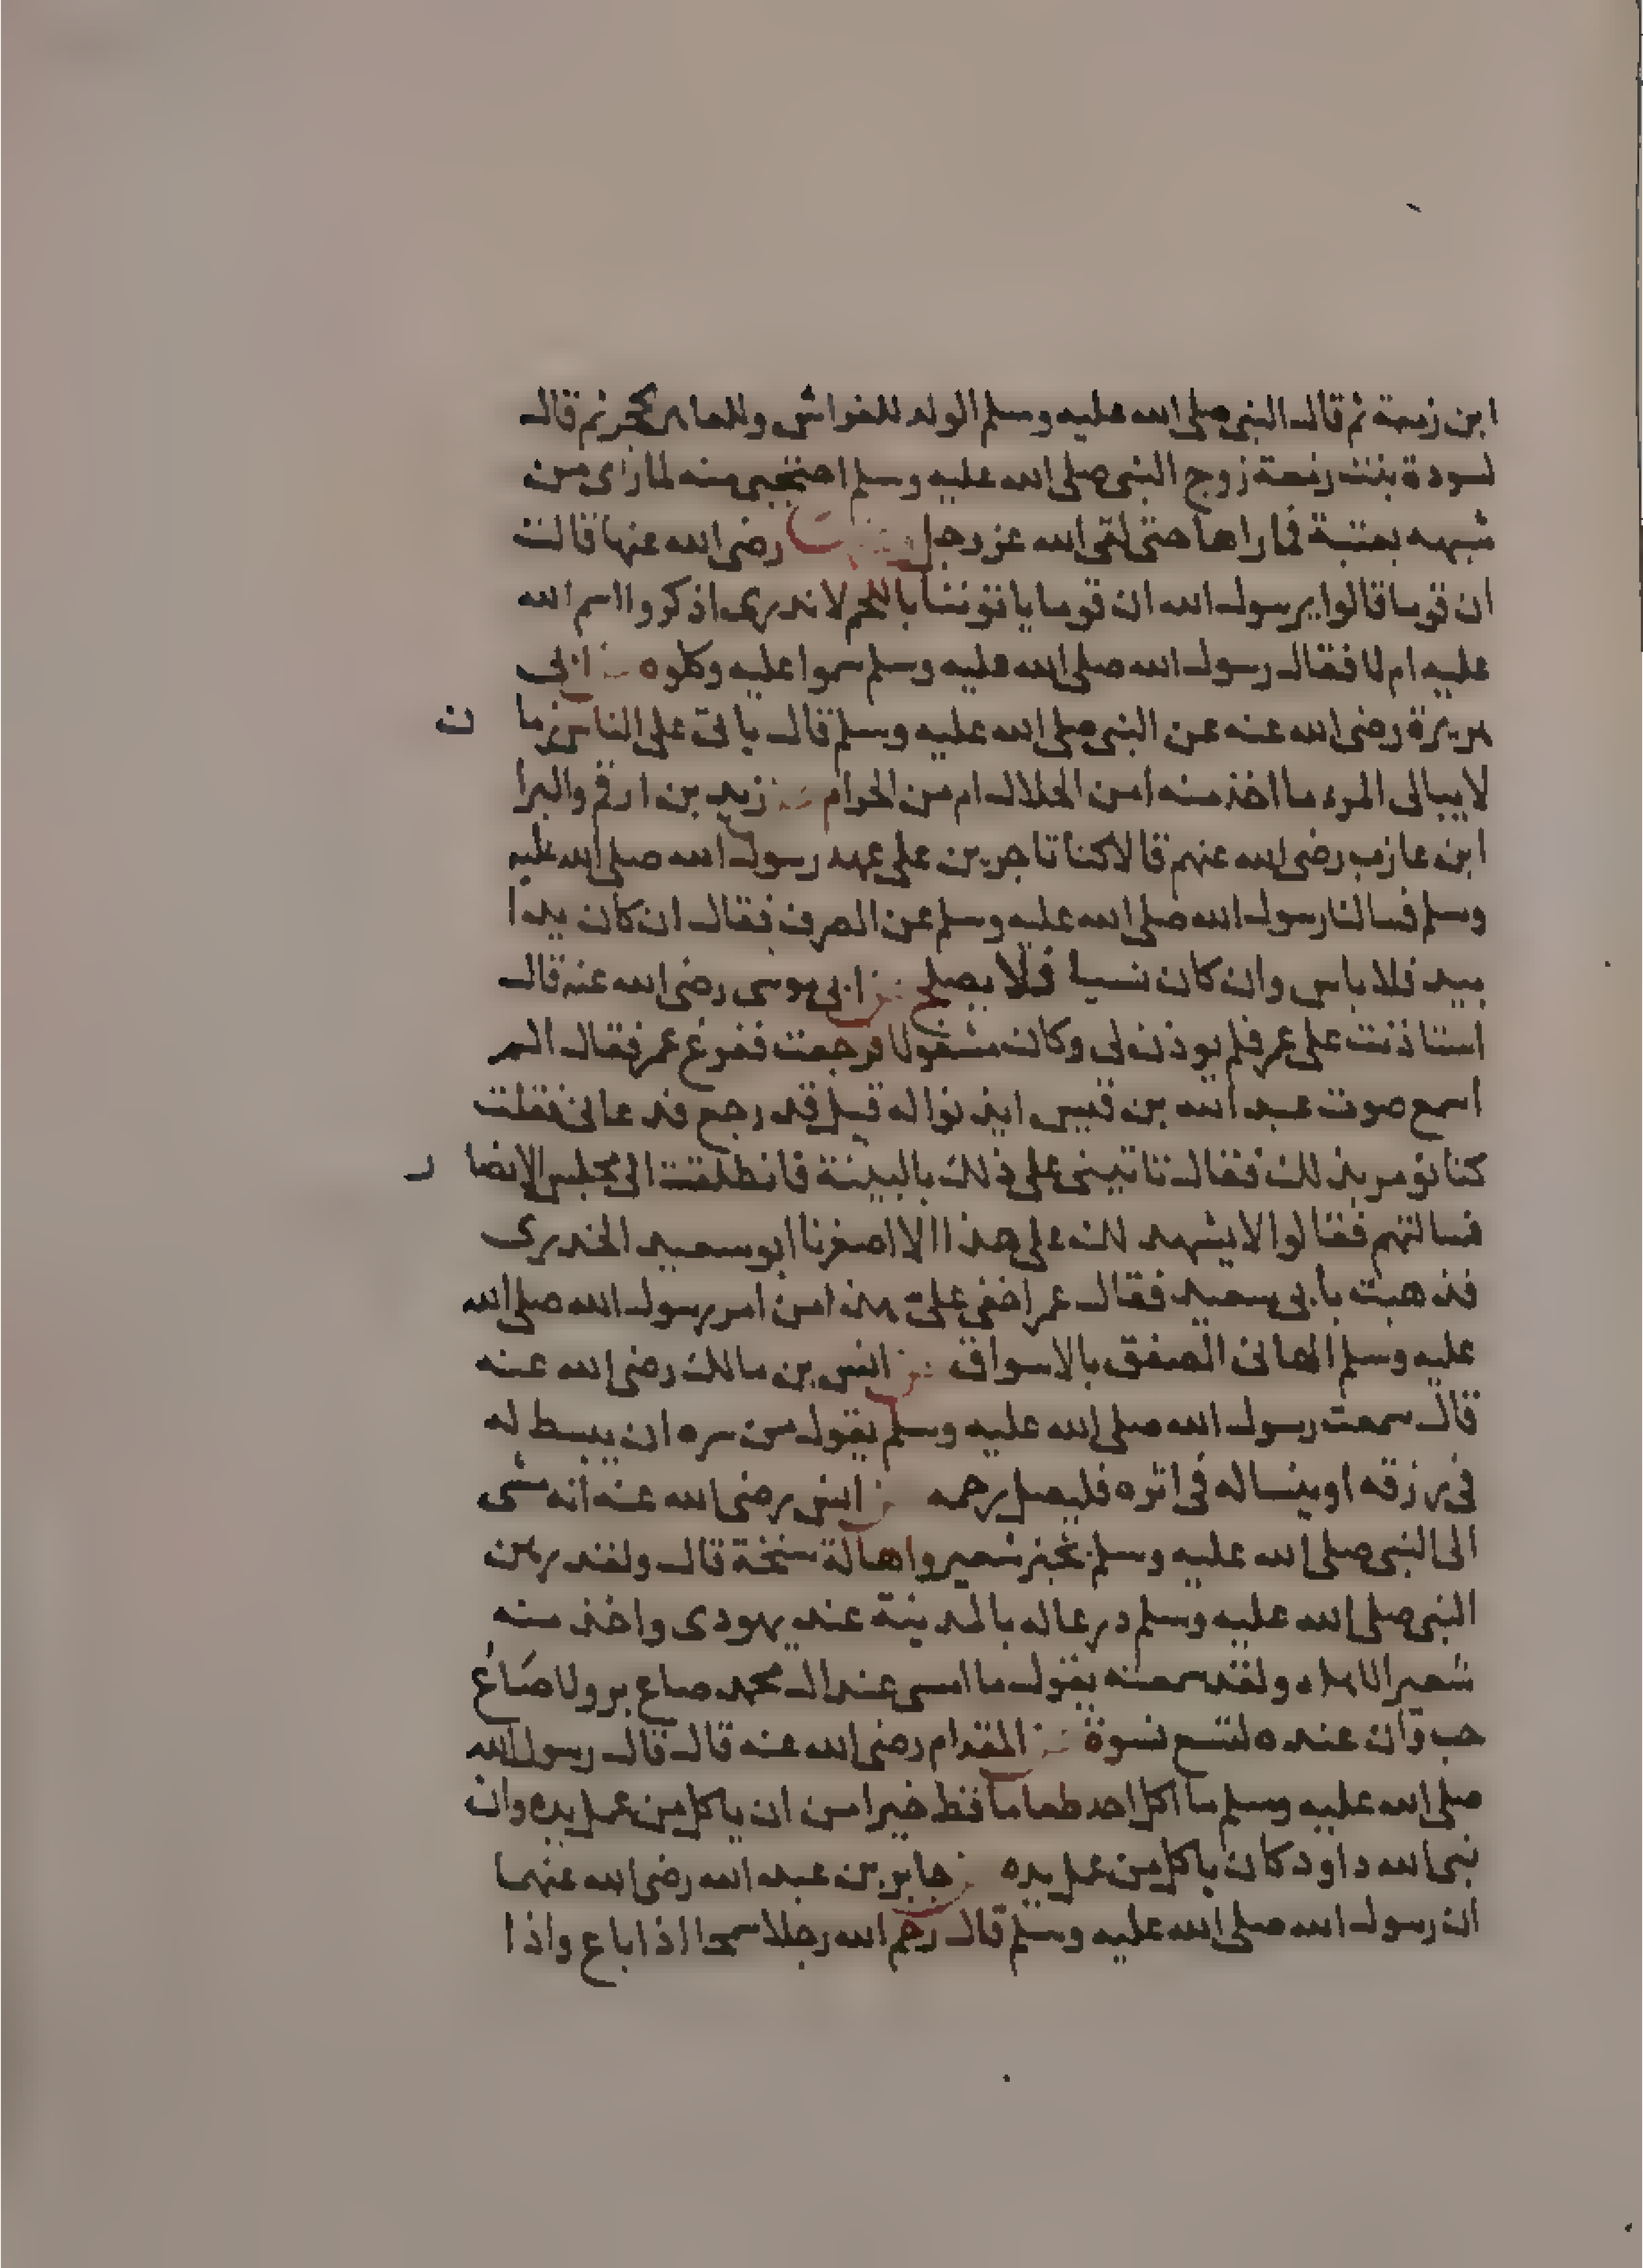 ابن زمعة ثم قال النبى صلى الله عليه وسلم الولد للفراش وللعاهر الحجر ثم قال
لسودة بنت زمعة زوج النبى صلى الله عليه وسلم احتجبى منه لما راى من
شبهه بعتبة فما راها حتى لقى الله عز وجل رضى الله عنها قالت
ان قوما قالوا يرسول الله ان قوما ياتوننا باللحم لا ندرى اذكروا اسم الله
عليه ام لا فقال رسول الله صلى الله عليه وسلم سموا عليه وكلوه عن ابى
هريرة رضى الله عنه عن النبى صلى الله عليه وسلم قال ياتى على الناس زما ن
لا يبالى المرء ما اخذ منه امن الحلال ام من الحرام عن زيد بن ارقم والبرا
ابن عازب رضى الله عنهم قالا كنا تاجرين على عهد رسول الله صلى الله عليه
وسلم فسالنا رسول الله صلى الله عليه وسلم عن الصرف فقال ان كان يدا
بيد فلا باس وان كان نسيا فلا يصلح عن ابى موسى رضى الله عنه قال
استاذنت على عمر فلم يوذن لى وكان مشغولا فرجعت ففرغ عمر فقال الم
اسمع صوت عبد الله بن قيس ايذنوا له قيل قد رجع فدعانى فقلت
كنا نومر بذلك فقال تاتينى على ذلك بالبينة فانطلقت الى مجلس الانصا ر
فسالتهم فقالوا لا يشهد لك على هذا الا اصغرنا ابو سعيد الخدرى
فذهبت بابى سعيد فقال عمر اخفى على هذا من امر رسول الله صلى الله
عليه وسلم الهانى الصفق بالاسواق عن انس بن مالك رضى الله عنه
قال سمعت رسول الله صلى الله عليه وسلم يقول من سره ان يبسط له
فى رزقه او ينسا له فى اثره فليصل رحمه عن انس رضى الله عنه انه مشى
الى النبى صلى الله عليه وسلم بخبز شعير واهالة سنخة قال ولقد رهن
النبى صلى الله عليه وسلم درعا له بالمدينة عند يهودى واخذ منه
شعيرا لاهله ولقد سمعته يقول ما امسى عند ال محمد صاع بر ولا صاع
حب وان عنده لتسع نسوة عن المقدام رضى الله عنه قال قال رسول الله
صلى الله عليه وسلم ما اكل احد طعاما قط خيرا من ان ياكل من عمل يده وان
نبى الله داود كان ياكل من عمل يده عن جابر بن عبد الله رضى الله عنهما
ان رسول الله صلى الله عليه وسلم قال رحم الله رجلا سمحا اذا باع واذا